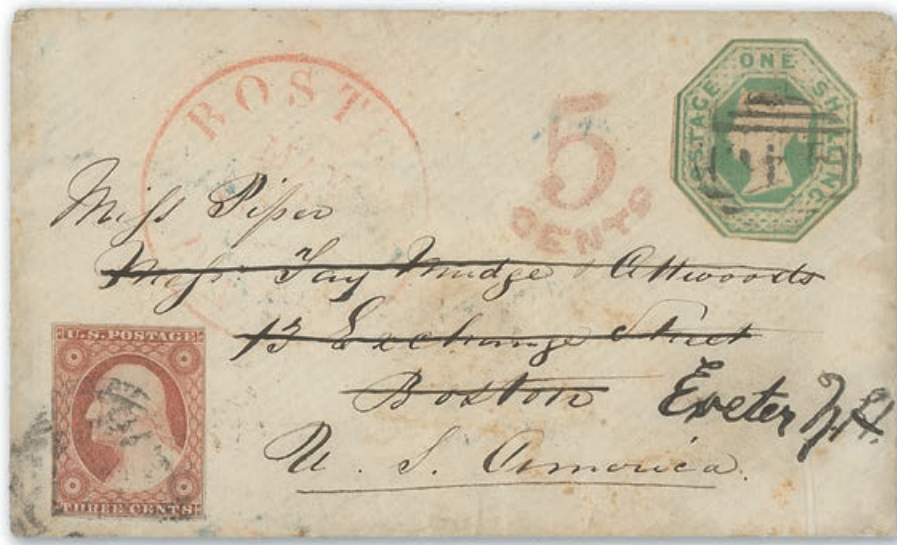 BOST
5
CENTS
POSTAGE ONE SHILLING
Miss Piper
Messrs Jay Mudge & Attwoods
13 Exchange Street
Boston
Exeter N.H.
U. S. America
U.S. POSTAGE
THREE CENTS